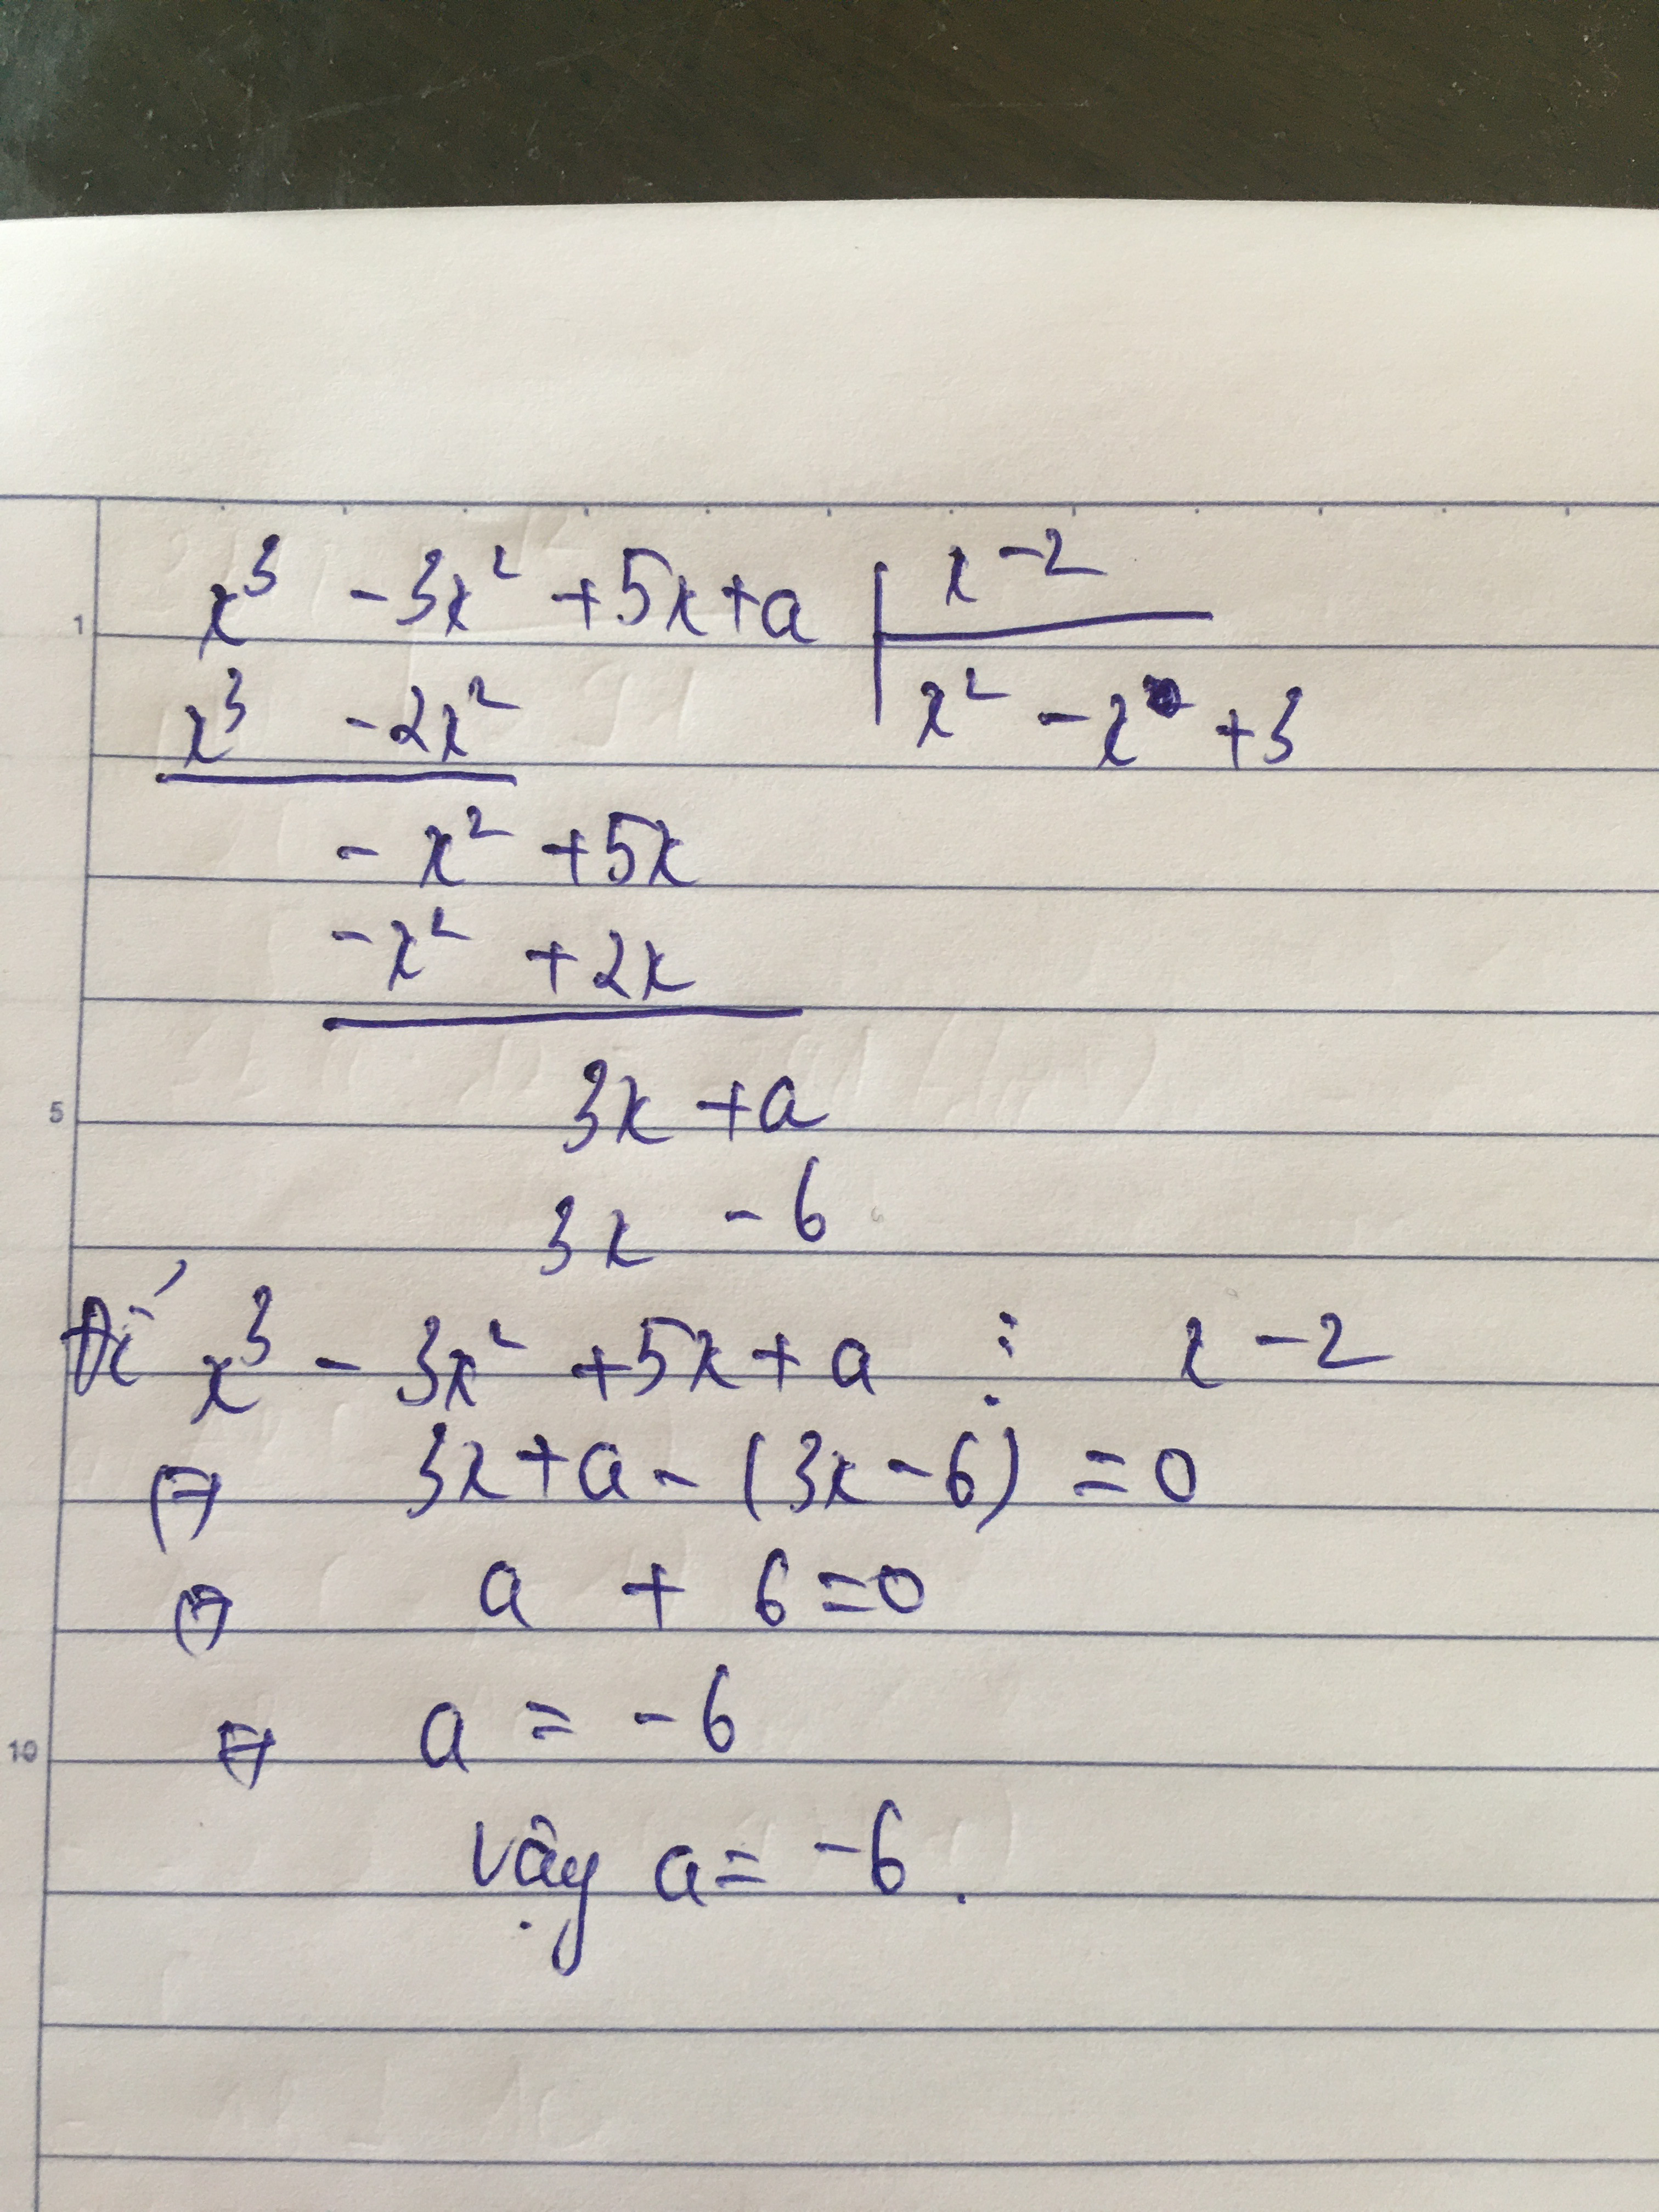 x³ - 3x² + 5x + a | x - 2
x³ - 2x² | x² - x + 3
- x² + 5x
- x² + 2x
3x + a
3x - 6
Để x³ - 3x² + 5x + a ⋮ x - 2
⇔ 3x + a - (3x - 6) = 0
⇔ a + 6 = 0
⇔ a = - 6
Vậy a = - 6.
1
5
10